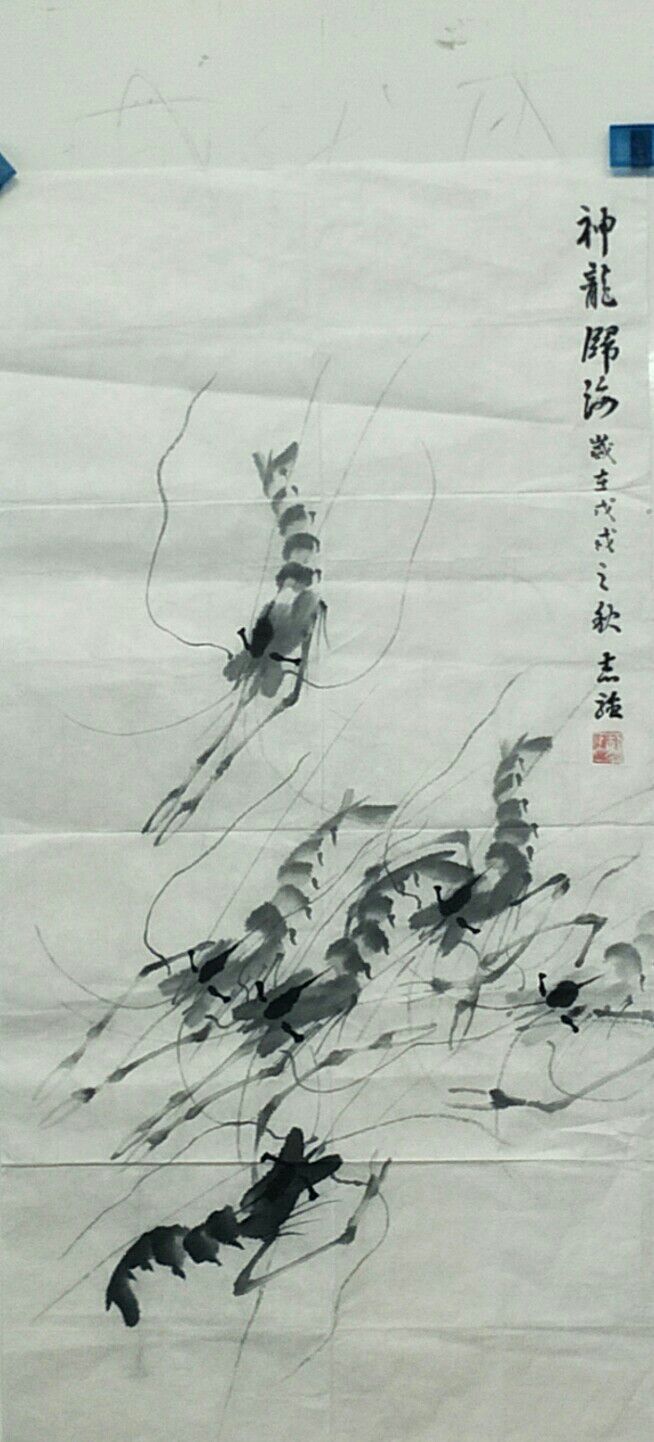 神龍歸海 歲在戊戌之秋 志強